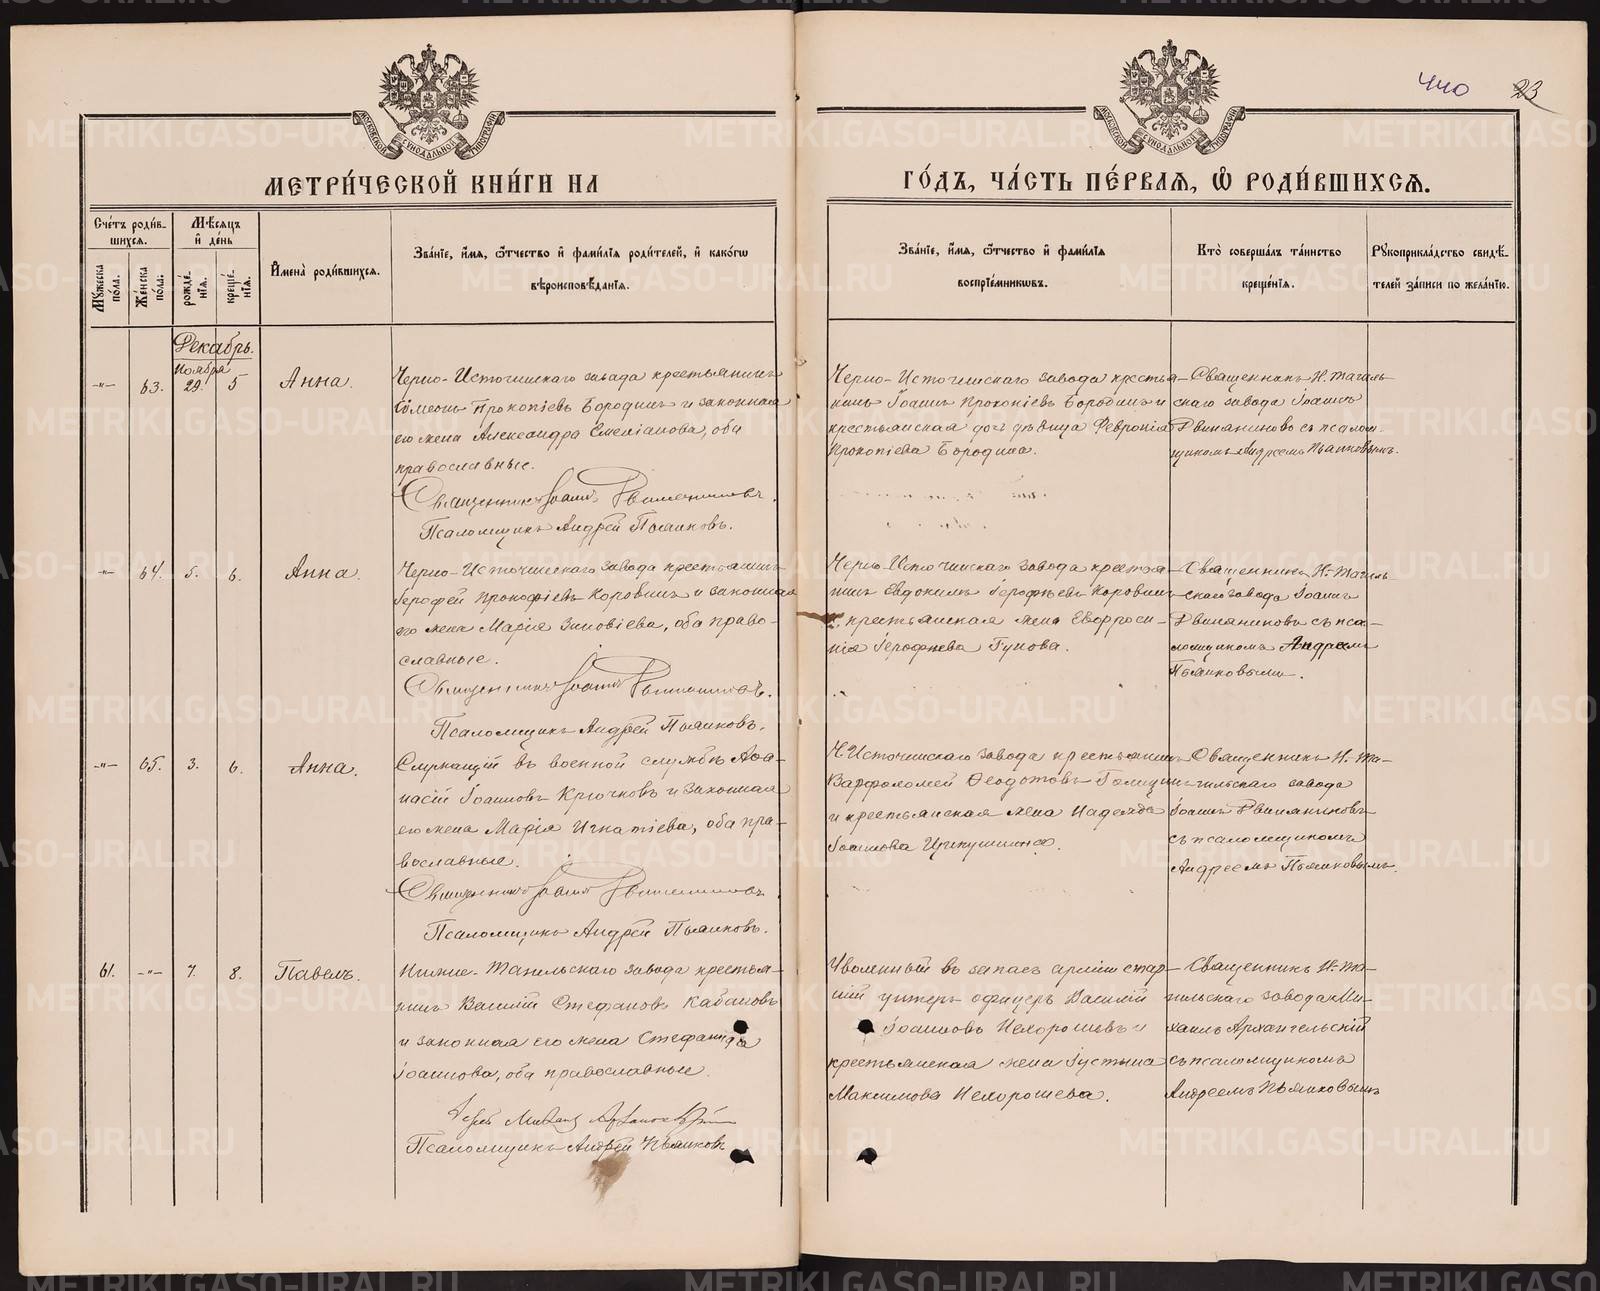 440 23
МОСКОВСКОЙ СУНОДАЛЬНОЙ ТИПОГРАФІИ
МОСКОВСКОЙ СУНОДАЛЬНОЙ ТИПОГРАФІИ
МЕТРИ́ЧЕСКОЙ КНИ́ГИ НА
ГО́ДЪ, ЧА́СТЬ ПЕ́РВАЯ, Ѽ РОДИ́ВШИХСЯ.
Сче́тъ роди́в-
шихся.
Мѣ́сяцъ
и҆ де́нь
Му́жеска по́ла.
Же́нска по́ла.
рожде́-
нія.
креще́-
нія.
И҆мена̀ роди́вшихся.
Зва́ніе, и҆́мя, ѻ҆́тчество и҆ фами́лія роди́телей, и҆ како́гѡ
вѣроисповѣ́данія.
Зва́ніе, и҆́мя, ѻ҆́тчество и҆ фами́лія
воспріе́мникѡвъ.
Кто̀ соверша́лъ та́инство
креще́нія.
Рукоприкла́дство свидѣ́-
телей за́писи по жела́нію.
Декабрь.
Ноября
-"- 63. 29. 5 Анна.
Черно-Источинскаго завода крестьянинъ
Симеонъ Прокопіевъ Бородинъ и законная
его жена Александра Емеліанова, оба
православные.
Священникъ Іоаннъ Двиняниновъ.
Псаломщикъ Андрей Пьянковъ.
Черно-Источинскаго завода крестья-
нинъ Іоаннъ Прокопіевъ Бородинъ и
крестьянская дочь дѣвица Февронія
Прокопіева Бородина.
Священникъ Н. Тагиль-
скаго завода Іоаннъ
Двиняниновъ съ псалом-
щикомъ Андреемъ Пьянковымъ.
-"- 64. 5. 6. Анна.
Черно-Источинскаго завода крестьянинъ
Іерофей Прокофіевъ Коровинъ и законная
его жена Марія Зиновіева, оба право-
славные.
Священникъ Іоаннъ Двиняниновъ.
Псаломщикъ Андрей Пьянковъ.
Черно-Источинскаго завода крестья-
нинъ Евдокимъ Іерофѣевъ Коровинъ
и крестьянская жена Евфроси-
нія Іерофѣева Гунова.
Священникъ Н.-Тагиль-
скаго завода Іоаннъ
Двиняниновъ съ пса-
ломщикомъ Андреемъ
Пьянковымъ.
-"- 65. 3. 6. Анна.
Служащій въ военной службѣ Аѳа-
насій Іоанновъ Крючковъ и законная
его жена Марія Игнатіева, оба пра-
вославные.
Священникъ Іоаннъ Двиняниновъ.
Псаломщикъ Андрей Пьянковъ.
Ч.Источинскаго завода крестьянинъ
Варфоломей Ѳеодотовъ Голицынъ
и крестьянская жена Надежда
Іоаннова
Священникъ Н.-Та-
гильскаго завода
Іоаннъ Двиняниновъ
съ псаломщикомъ
Андреемъ Пьянковымъ.
61. -"- 7. 8. Павелъ.
Нижне-Тагильскаго завода крестья-
нинъ Василій Стефановъ Кабановъ
и законная его жена Стефанида
Іоаннова, оба православные.
Михаилъ Архангельскій
Псаломщикъ Андрей Пьянковъ
Уволенный въ запасъ арміи стар-
шій унтеръ офицеръ Василій
Іоанновъ Нехорошевъ и
крестьянская жена Іустина
Максимова Нехорошева.
Священникъ Н.-Та-
гильскаго завода Ми-
хаилъ Архангельскій
съ псаломщикомъ
Андреемъ Пьянковымъ
METRIKI.GASO-URAL.RU